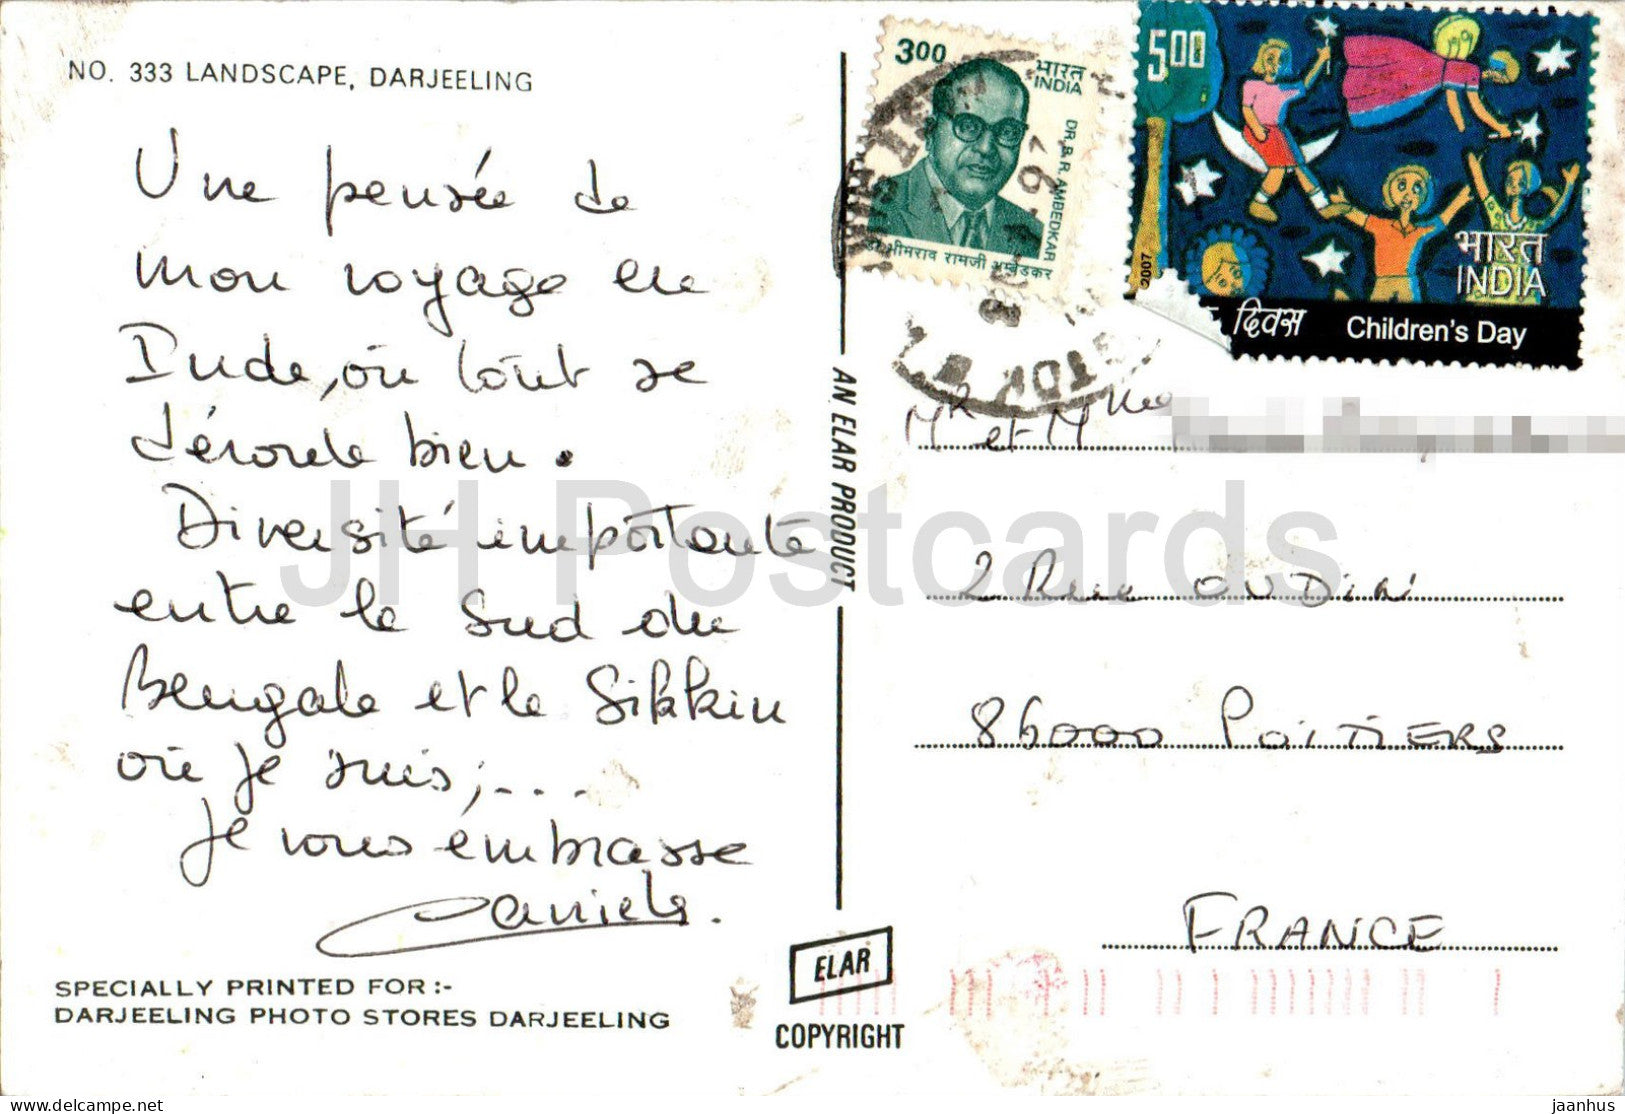 NO. 333 LANDSCAPE, DARJEELING
Une pensée de
mon voyage en
Inde, où tout se
déroule bien.
Diversité importante
entre le Sud du
Bengale et le Sikkim
où je suis, ...
Je vous embrasse
Daniele.
SPECIALLY PRINTED FOR :-
DARJEELING PHOTO STORES DARJEELING
AN ELAR PRODUCT
ELAR
COPYRIGHT
3.00
भारत
INDIA
DR. B. R. AMBEDKAR
डॉ. भीमराव रामजी अम्बेडकर
5.00
2007
भारत
INDIA
दिवस
Children's Day
Mr et Mme
2 Rue OUDIN
86000 POITIERS
FRANCE
JH Postcards
delcampe.net
jaanhus